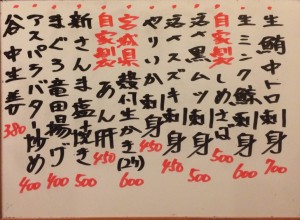 生鮪中トロ刺身 700
生ミンク鯨刺 600
自家製しめさば 500
活〆黒ムツ刺身 500
活〆スズキ刺身 450
やりいか刺身 450
宮城県殻付生かき(2ケ) 600
自家製あん肝 450
新さんま塩焼き 500
まぐろ竜田揚げ 400
アスパラバター炒め 400
谷中生姜 380